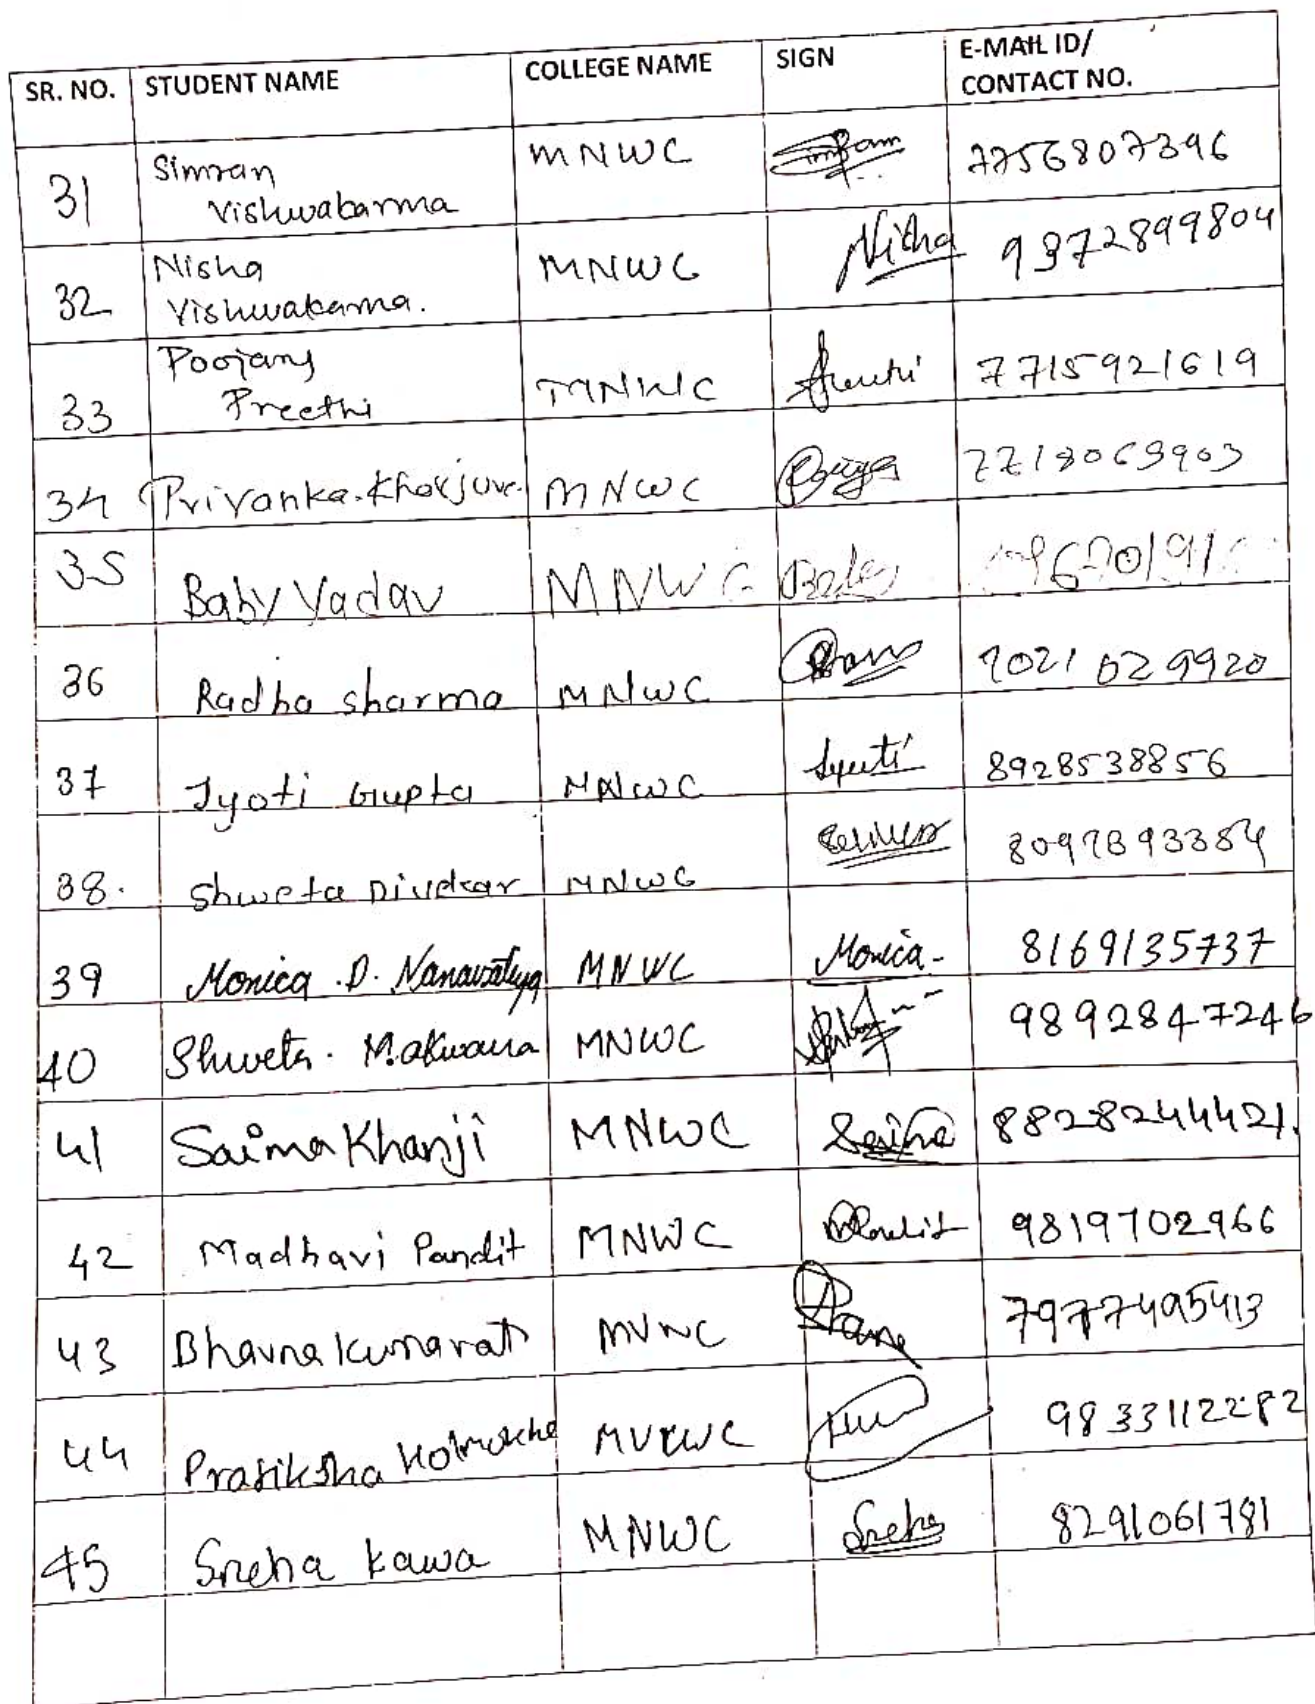 SR. NO. STUDENT NAME COLLEGE NAME SIGN E-MAIL ID/
CONTACT NO.
31 Simran MNWC 7756807396
Vishwakarma
32 Nisha MNWC Nisha 9372899804
Vishwakarma.
33 Poojary MNWC 7715921619
Preethi
34 Priyanka. MNWC Priya 7718069903
35 Baby Yadav MNWC
36 Radha Sharma MNWC 7021029920
37 Jyoti Gupta MNWC Jyoti 8928538856
38. Shweta Divekar MNWC 8097893384
39 Monica .D. MNWC Monica- 8169135737
40 Shweta. Makwana MNWC 9892847246
41 Saima Khanji MNWC Saima 8828244421.
42 Madhavi Pandit MNWC 9819702966
43 Bhavna Kumarat MVNC 7977495413
44 Pratiksha 9833112282
45 Sneha Kawa MNWC Sneha 8291061781